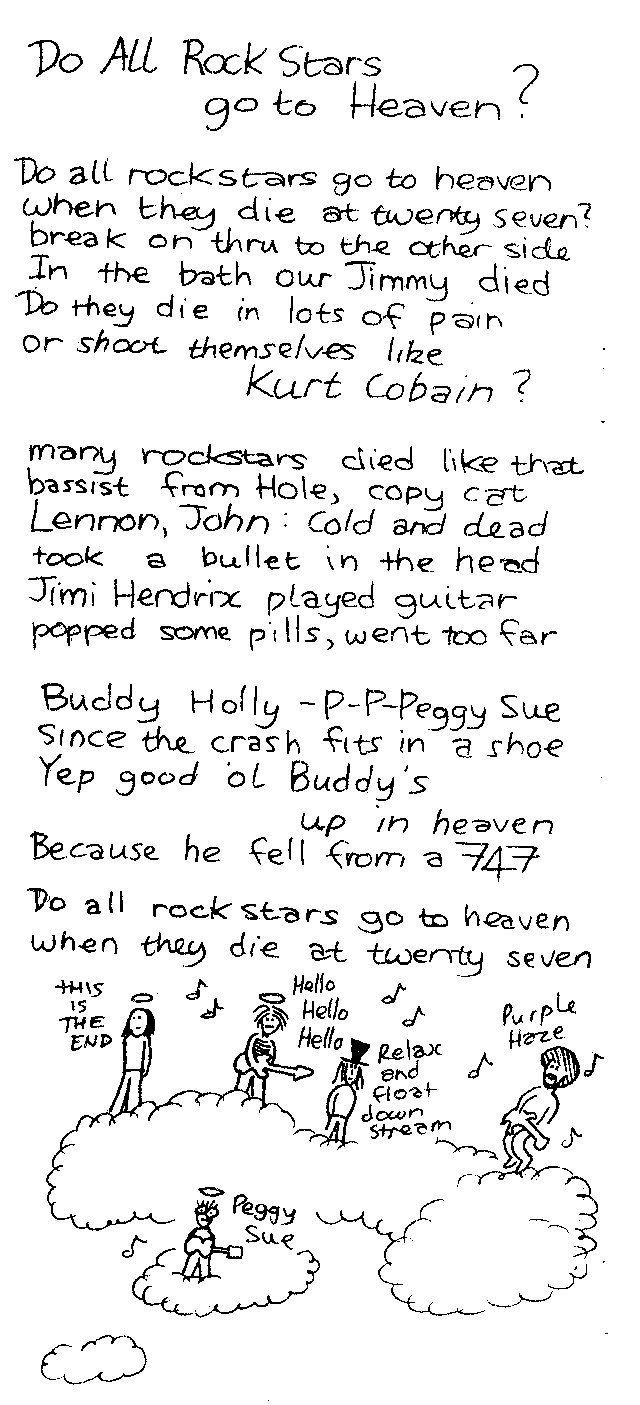 Do All Rock Stars
go to Heaven?
Do all rockstars go to heaven
when they die at twenty seven?
break on thru to the other side
In the bath our Jimmy died
Do they die in lots of pain
or shoot themselves like
Kurt Cobain?
many rockstars died like that
bassist from Hole, copy cat
Lennon, John: Cold and dead
took a bullet in the head
Jimi Hendrix played guitar
popped some pills, went too far
Buddy Holly -P-P-Peggy Sue
Since the crash fits in a shoe
Yep good 'ol Buddy's
up in heaven
Because he fell from a 747
Do all rockstars go to heaven
when they die at twenty seven
THIS
IS
THE
END
Hello
Hello
Hello
Relax
and
float
down
stream
Purple
Haze
Peggy
Sue